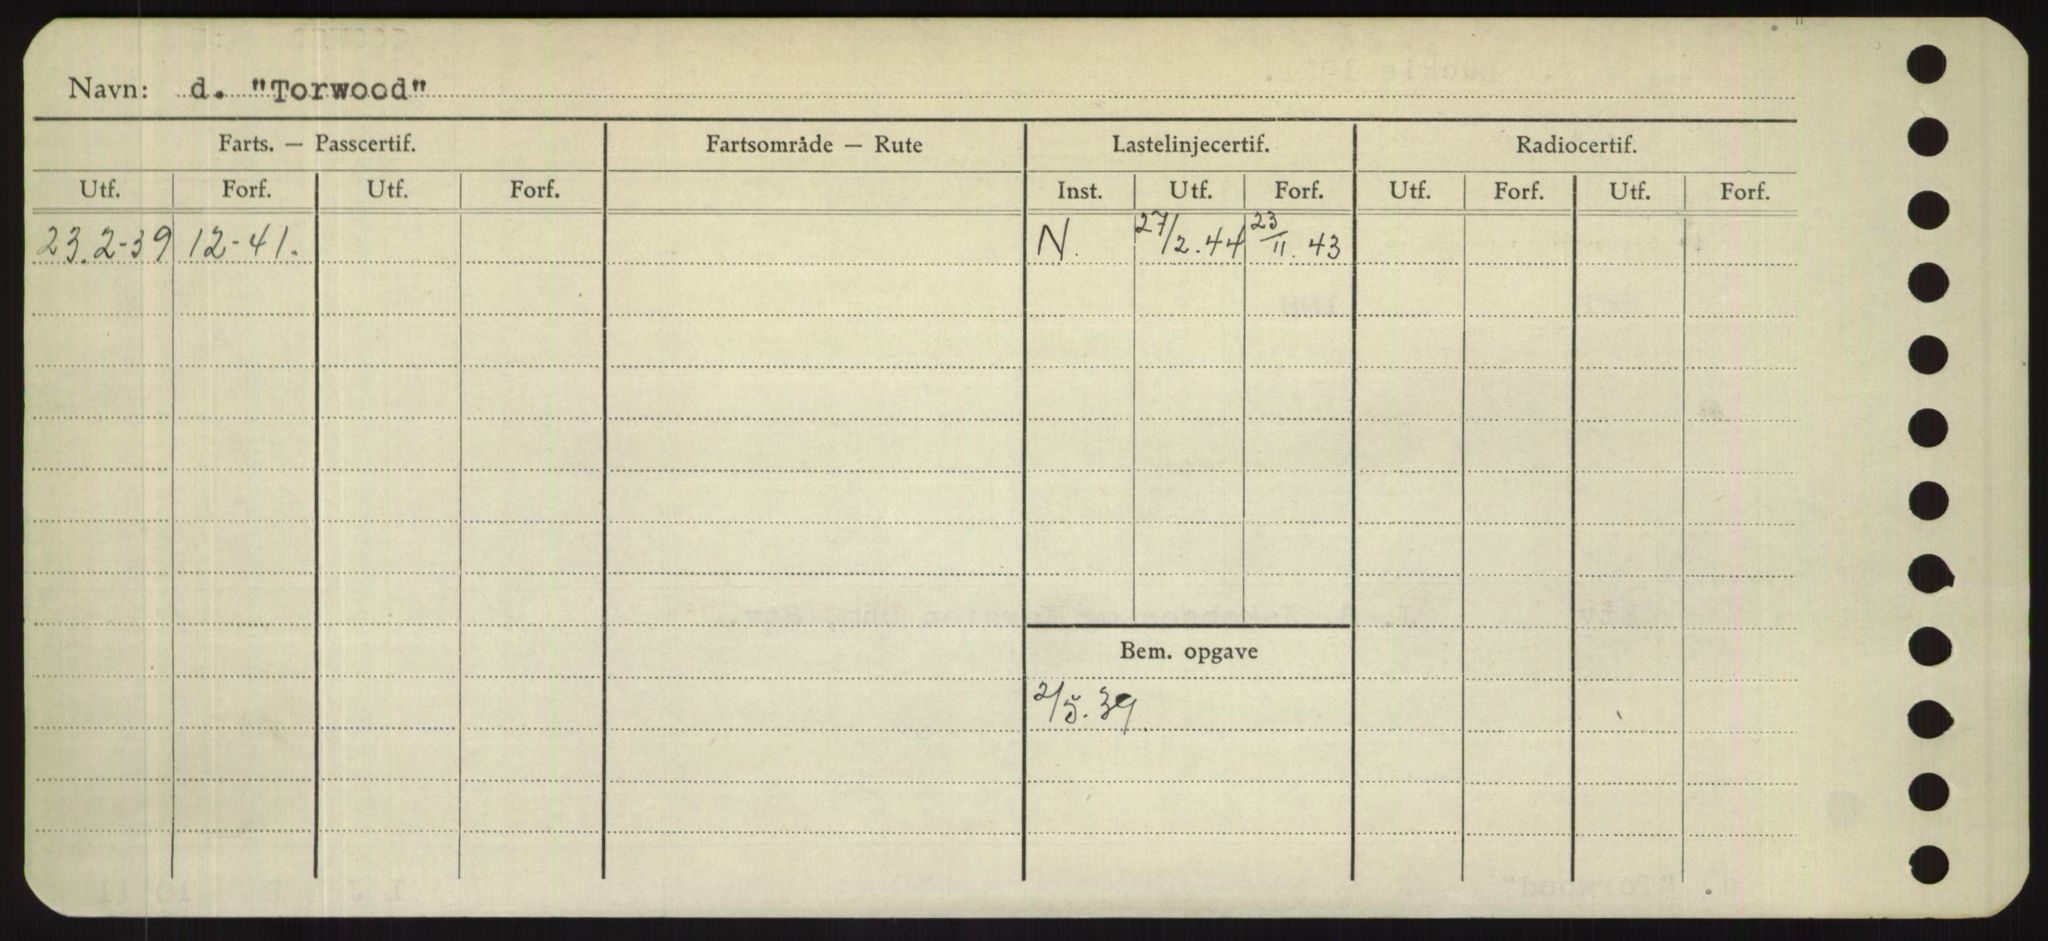 Navn: d. "Torwood"
Farts. — Passcertif. Fartsområde — Rute Lastelinjecertif. Radiocertif.
Utf. Forf. Utf. Forf. Inst. Utf. Forf. Utf. Forf. Utf. Forf.
23.2-39 12-41. N. 27/2.44 23/11.43
Bem. opgave
2/5.39